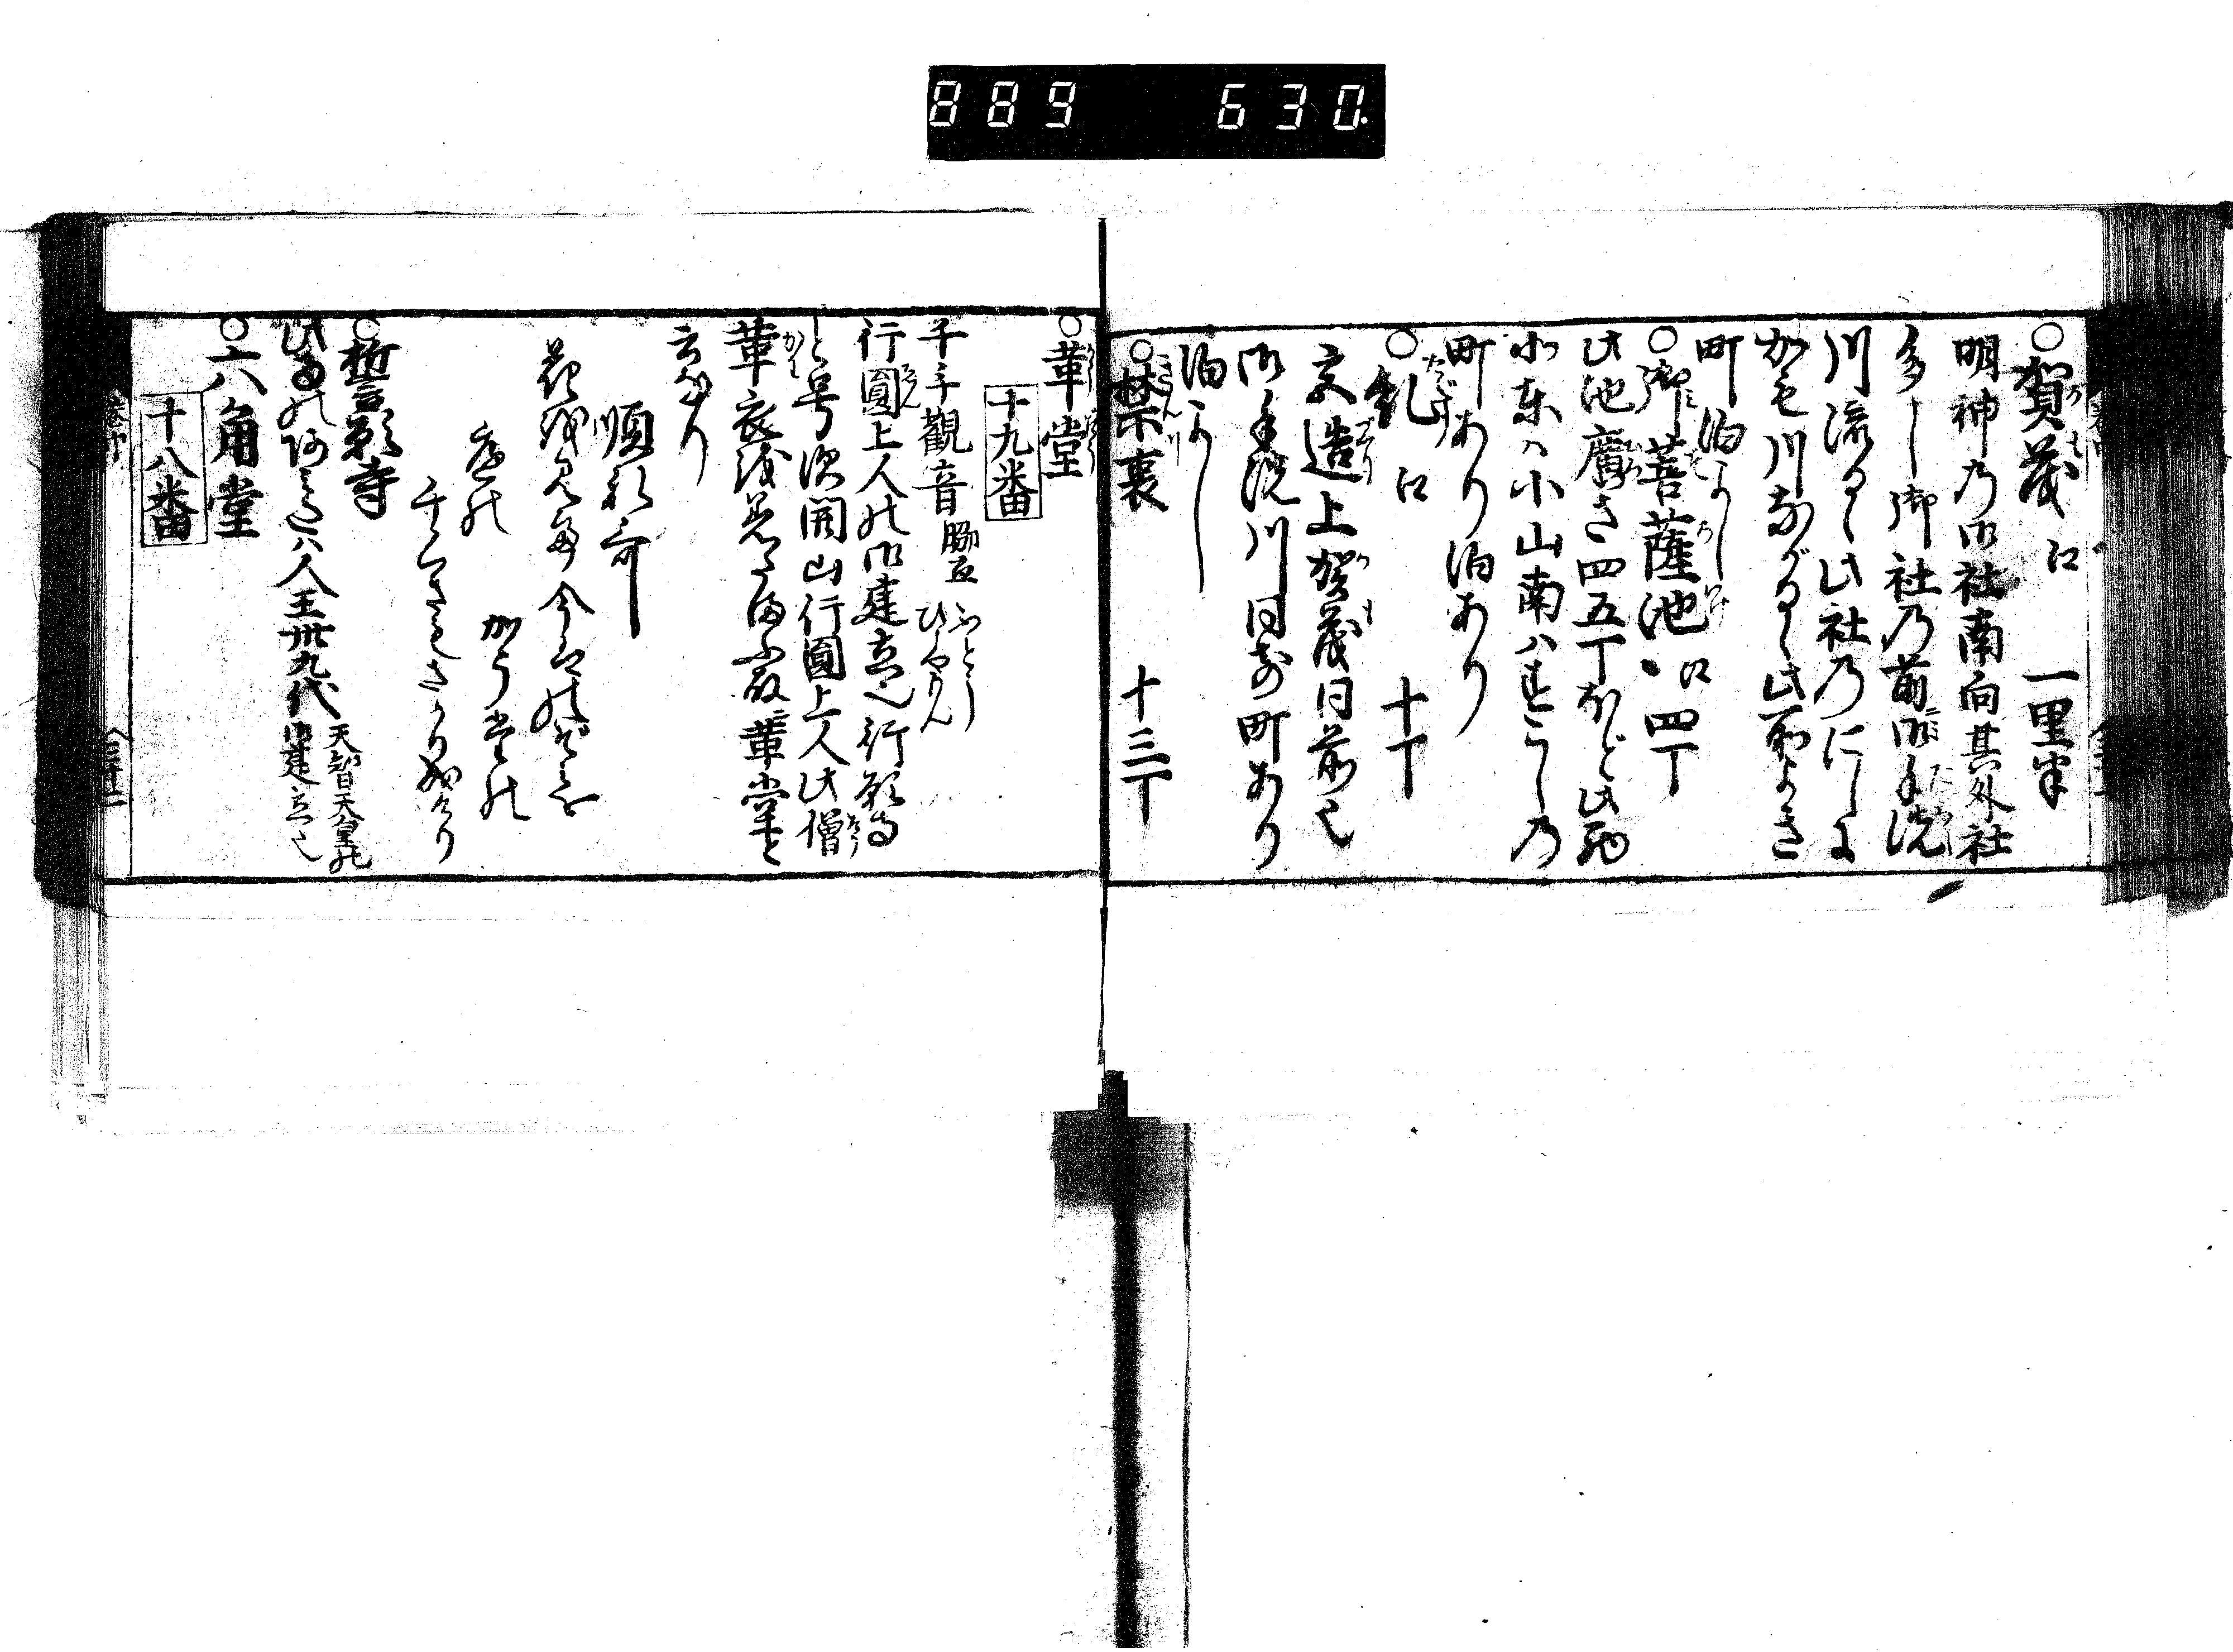 889 630.
○賀茂 江 一里半
明神乃御社南向其外社
多し御社乃前御手洗
川流るゝ此社乃にしに
かも川ながるゝ此所よき
町泊よし
○御菩薩池 江 四丁
此池廣さ四五丁ほど此池
北東ハ小山南ハすこし乃
町あり泊あり
○糺 江 十丁
宮造上賀茂同前也
御手洗川同前町あり
泊よし
○禁裏 十三丁
○革堂
十九番
千手觀音 脇立 ふどう びしやもん
行圓上人の御建立也行願寺
と号須開山行圓上人此僧
革衣越着たまふ故革堂と
云なり
順礼哥
花越見て今ハ望を
かう堂の
庭の
千くさもさかり成けり
○誓願寺
此寺の阿みだハ人王卅九代 天智天皇の御建立也
○六角堂
十八番